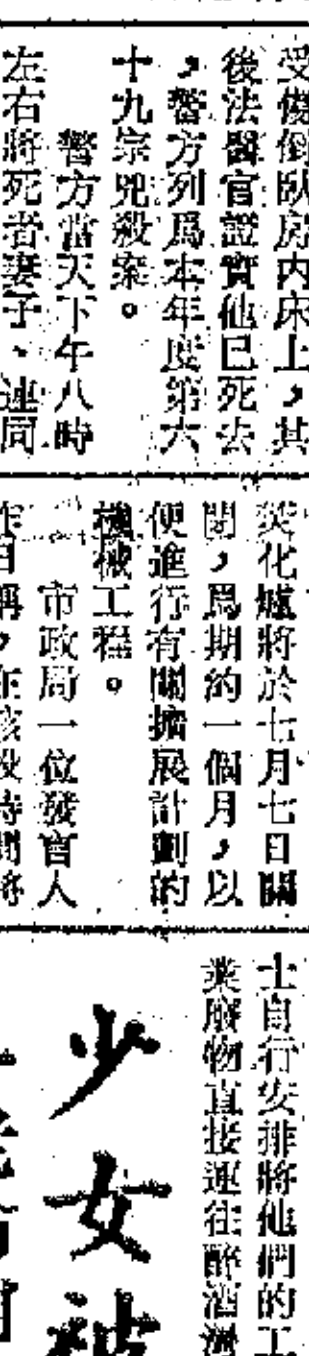 受傷倒臥房內床上，其
後法醫官證實他已死去
，警方列爲本年度第六
十九宗兇殺案。
警方當天下午八時
左右將死者妻子、連同
焚化爐將於七月七日關
閉，爲期約一個月，以
便進行有關擴展計劃的
機械工程。
市政局一位發言人
昨日稱，在該段時間將
士自行安排將他們的工
業廢物直接運往醉酒灣
少女被